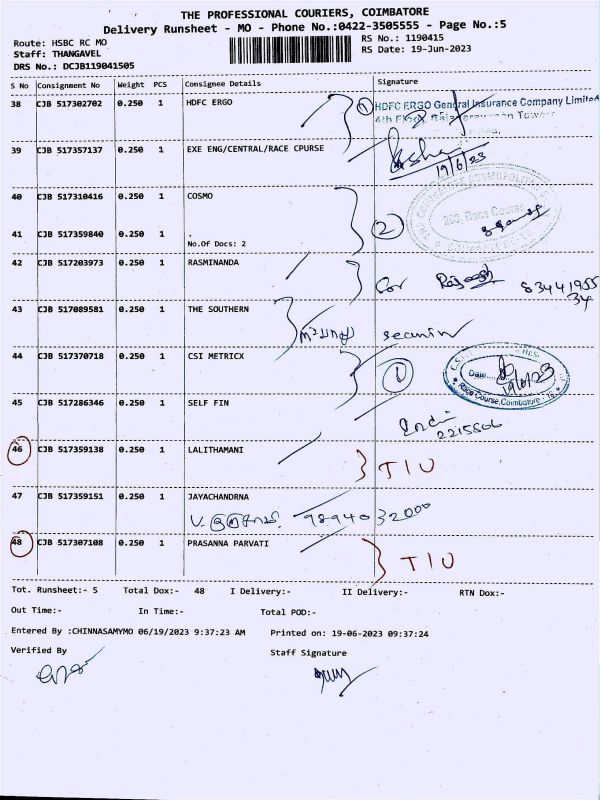 THE PROFESSIONAL COURIERS, COIMBATORE
Delivery Runsheet - MO - Phone No.:0422-3505555 - Page No.:5
Route: HSBC RC MO
Staff: THANGAVEL
DRS No.: DCJB119041505
RS No.: 1190415
RS Date: 19-Jun-2023
S No Consignment No Weight PCS Consignee Details Signature
38 CJB 517302702 0.250 1 HDFC ERGO
① HDFC ERGO General Insurance Company Limited
4th Floor,
39 CJB 517357137 0.250 1 EXE ENG/CENTRAL/RACE CPURSE
19/6/23
40 CJB 517310416 0.250 1 COSMO
② Race Course
41 CJB 517359840 0.250 1 .
No.Of Docs: 2
42 CJB 517203973 0.250 1 RASMINANDA
Cor Rajesh 83441955
34
43 CJB 517089581 0.250 1 THE SOUTHERN
44 CJB 517370718 0.250 1 CSI METRICX
① Date 19/6/23
Race Course, Coimbatore - 18
45 CJB 517286346 0.250 1 SELF FIN
2215506
46 CJB 517359138 0.250 1 LALITHAMANI
TIU
47 CJB 517359151 0.250 1 JAYACHANDRNA
9894032000
48 CJB 517307108 0.250 1 PRASANNA PARVATI
TIU
Tot. Runsheet:- 5 Total Dox:- 48 I Delivery:- II Delivery:- RTN Dox:-
Out Time:- In Time:- Total POD:-
Entered By :CHINNASAMYMO 06/19/2023 9:37:23 AM Printed on: 19-06-2023 09:37:24
Verified By Staff Signature